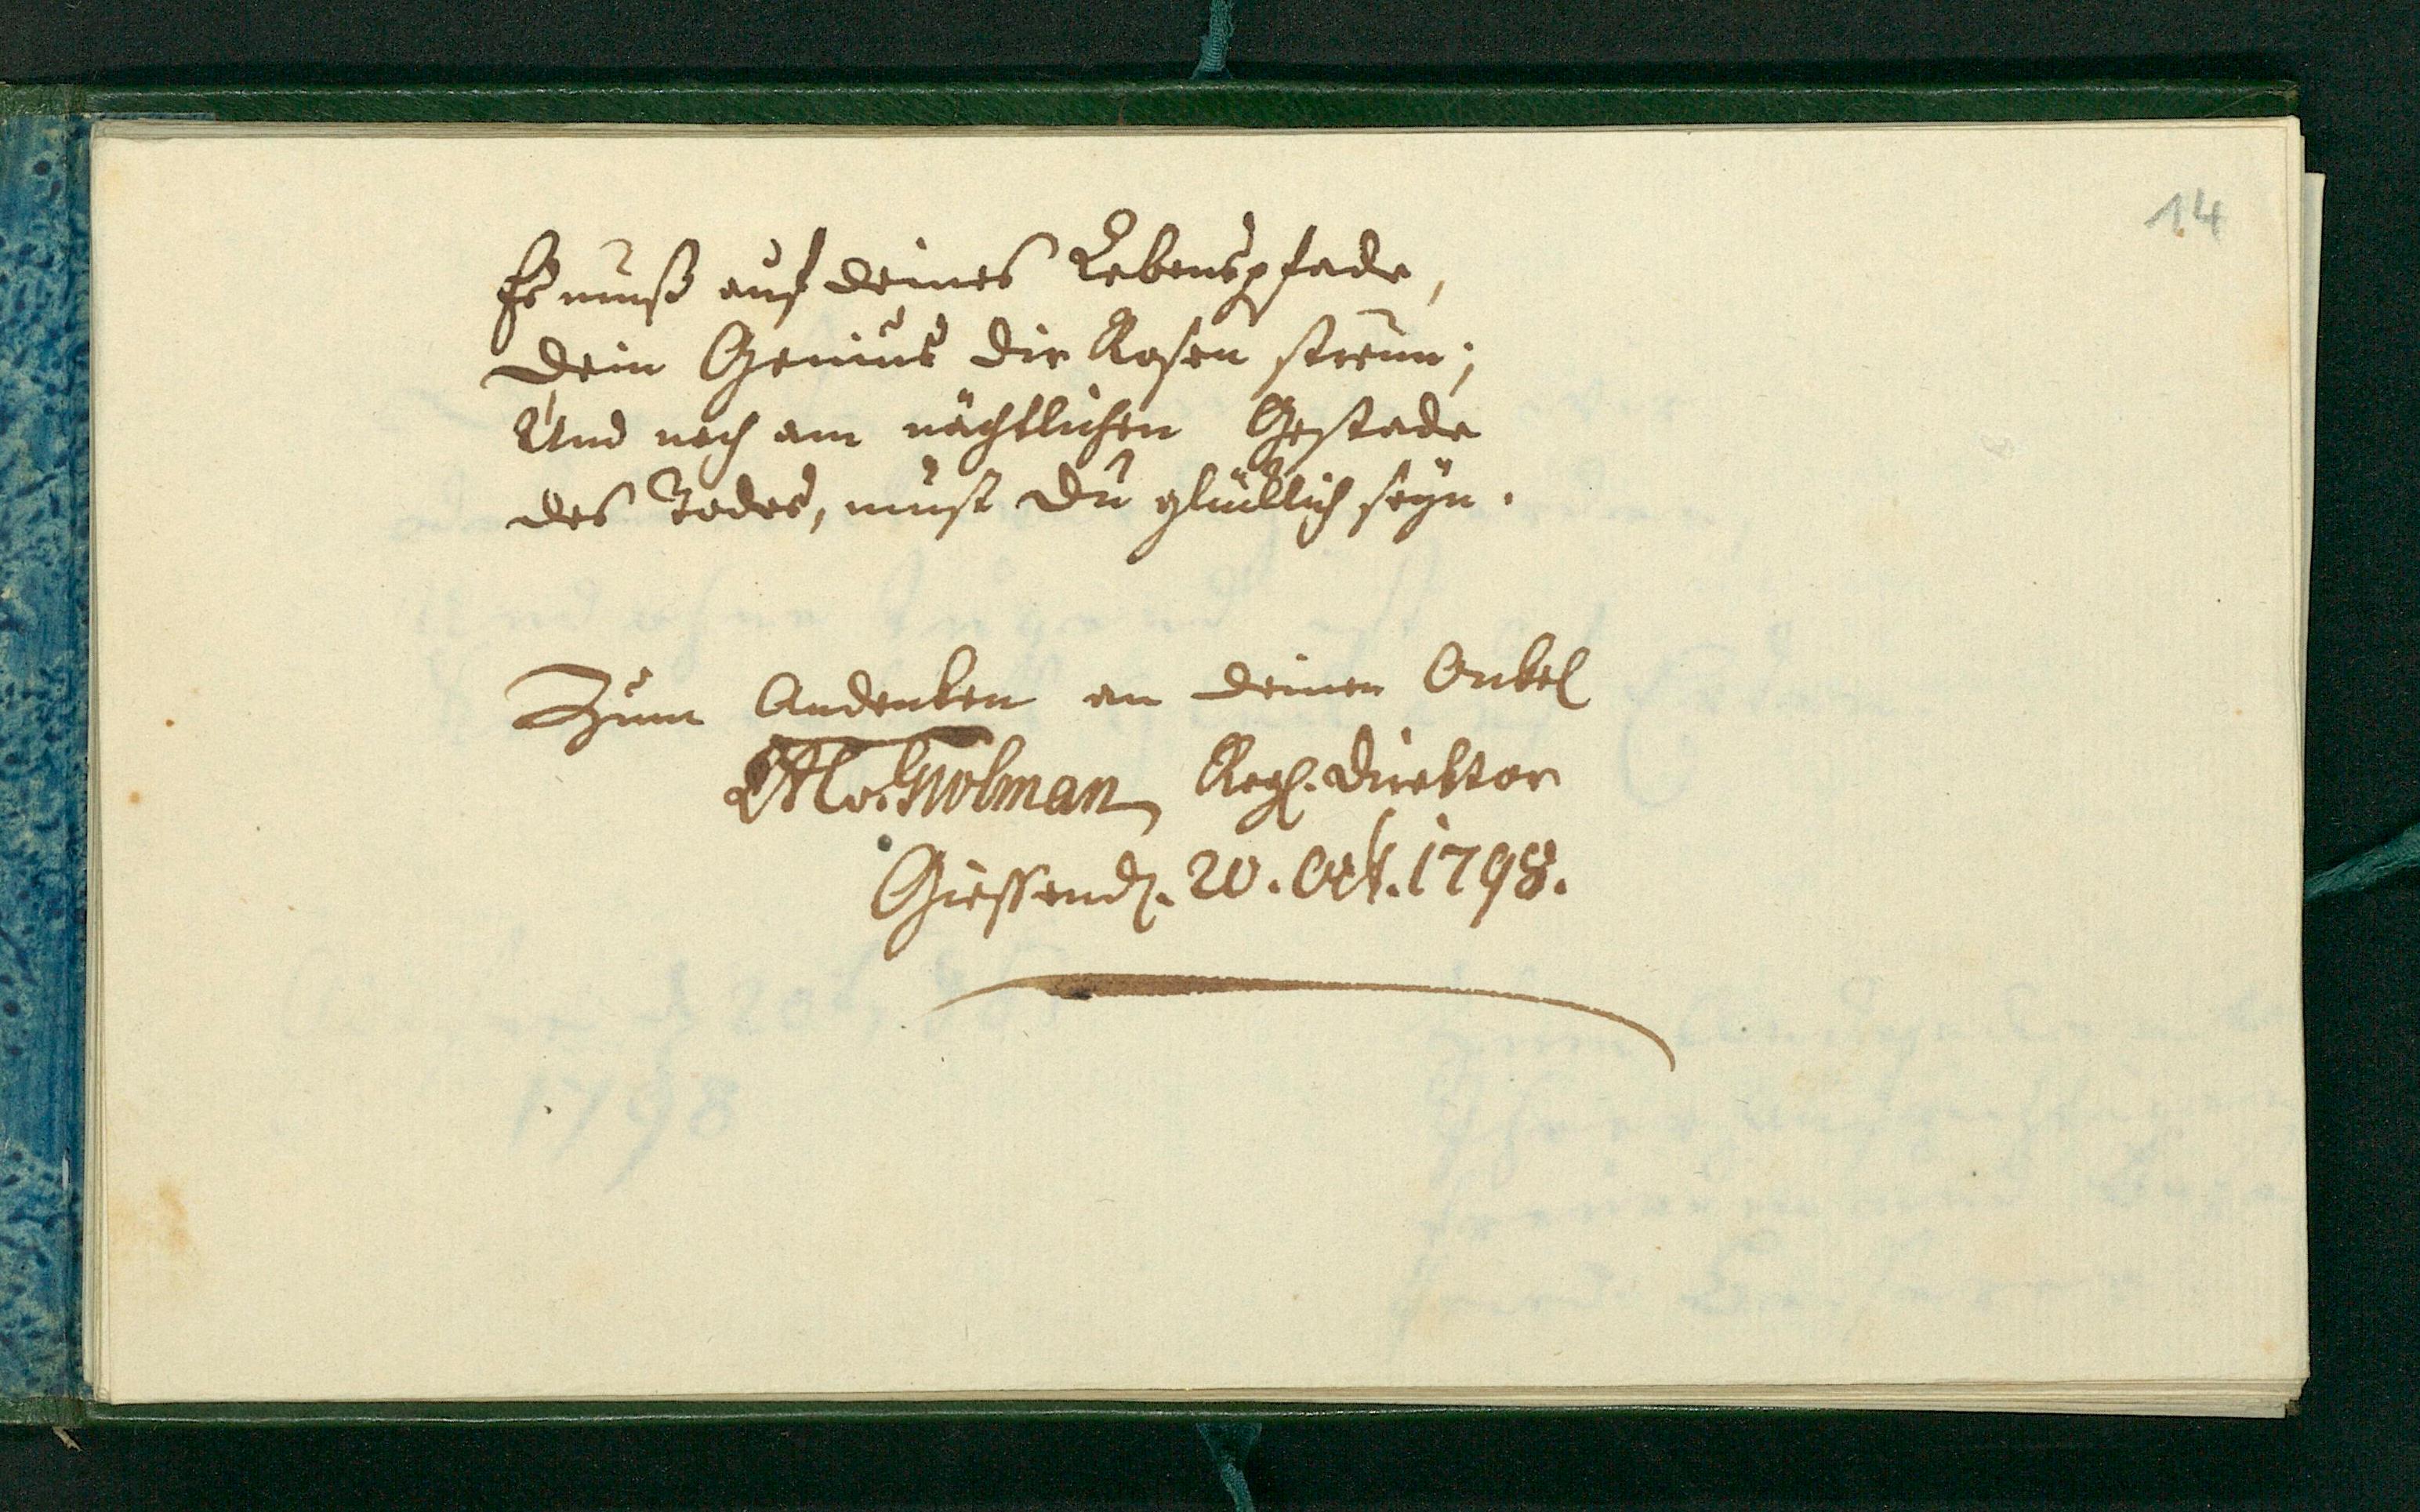 14
Es muß auf deines Lebenspfade,
Dein Genius dir Rosen streun;
Und noch am nächtlichen Gestade
des Todes, must Du glücklich seyn.
Zum Andenken an deinen Onkel
Grolman Reg. Direktor
Giessen d. 20. Okt. 1798.